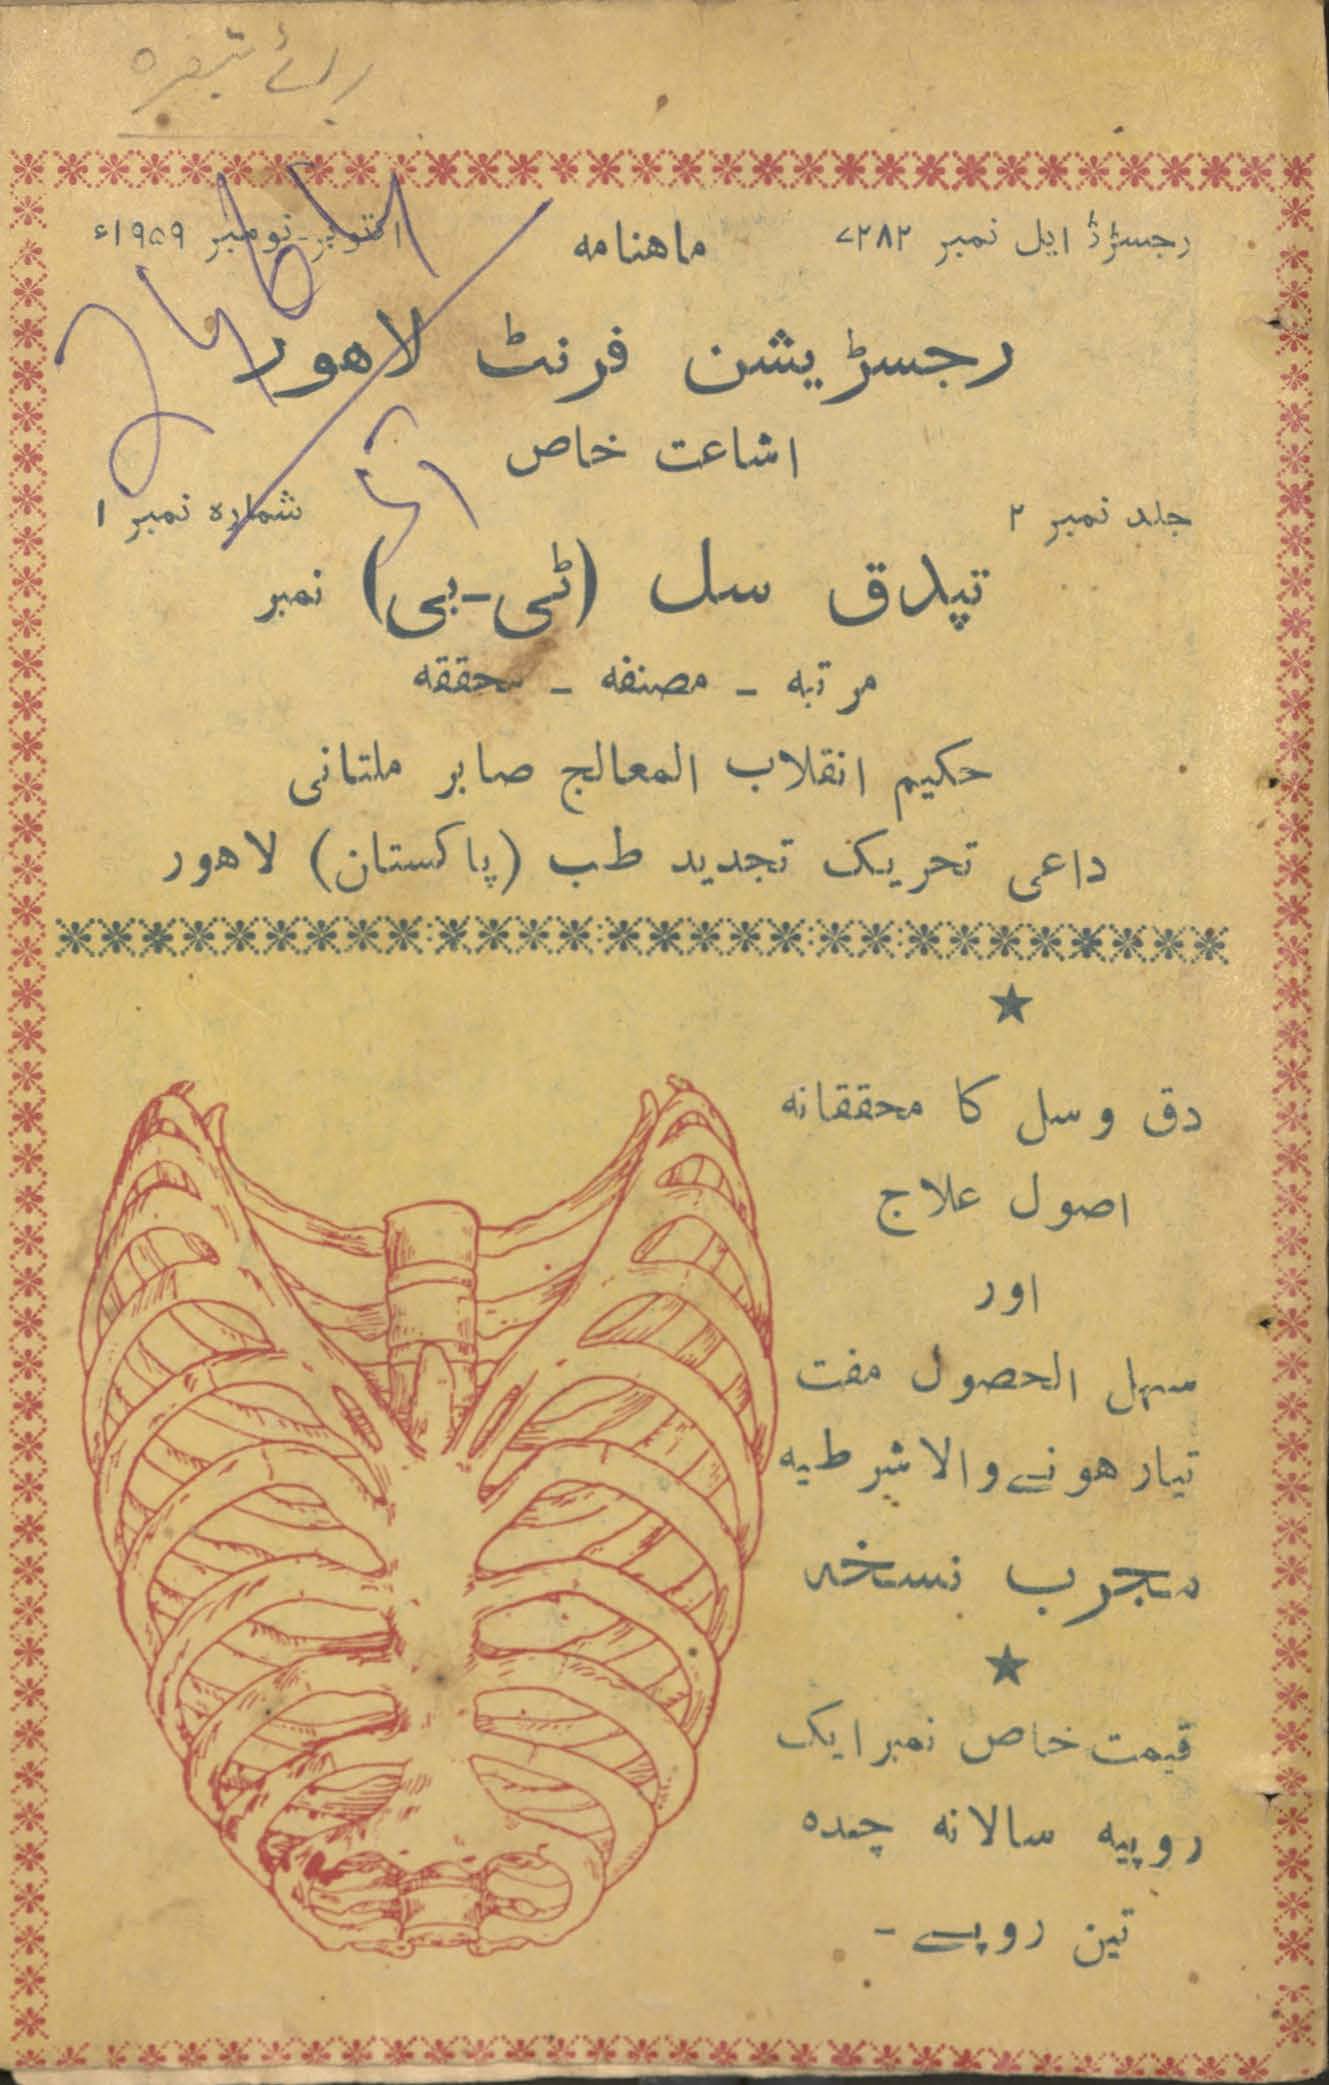 برائے تبصرہ
رجسٹرڈ ایل نمبر ۷۲۸۲ ماھنامہ اکتوبر۔نومبر ۱۹۵۹ء
رجسٹریشن فرنٹ لاھور
اشاعت خاص
جلد نمبر ۲ شمارہ نمبر ۱
تپدق سل (ٹی-بی) نمبر
مرتبہ - مصنفہ - محققہ
حکیم انقلاب المعالج صابر ملتانی
داعی تحریک تجدید طب (پاکستان) لاھور
دق و سل کا محققانہ
اصول علاج
اور
سہل الحصول مفت
تیار ھونے والا شرطیہ
مجرب نسخہ
قیمت خاص نمبر ایک
روپیہ سالانہ چندہ
تین روپے -